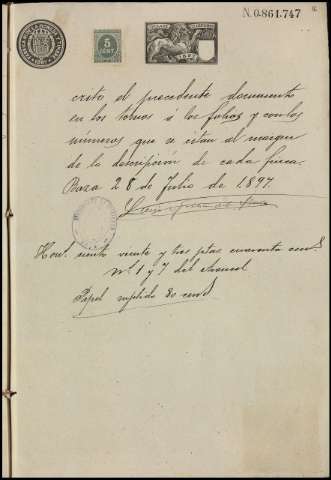 N. 0.861.747
5
CENT.
1897
crito el precedente documento
en los tomos á los folios y con los
números que se citan al margen
de la descripción de cada finca.
Baza 28 de Julio de 1897.
Hon.s ciento veinte y tres ptas cuarenta cent.s
n.os 1 y 7 del Arancel
Papel suplido 80 cent.s